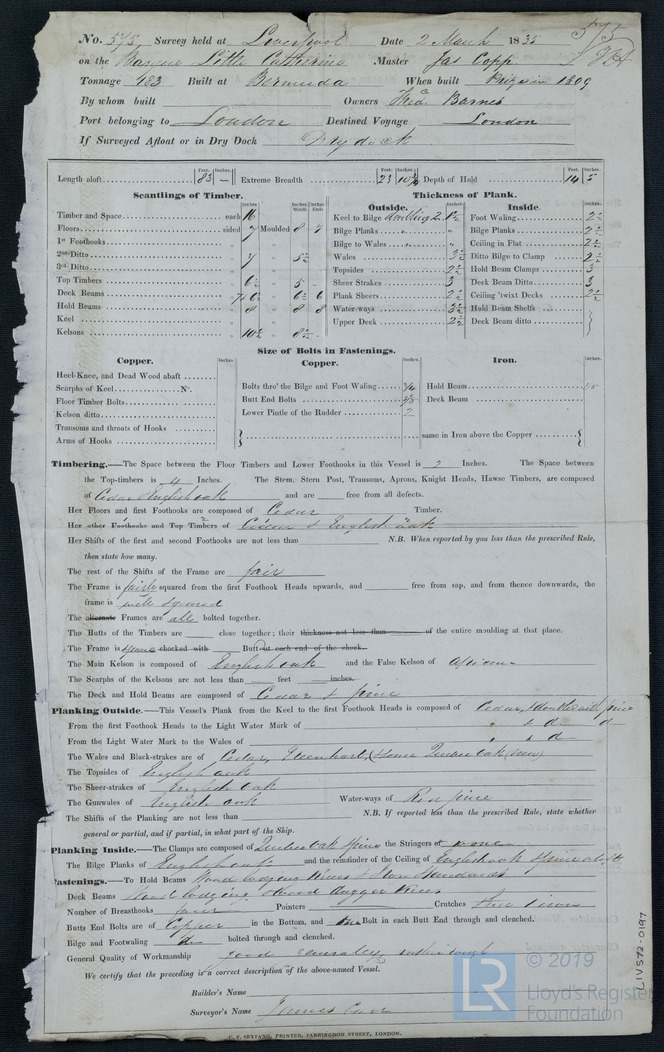 No. 575 Survey held at Liverpool Date 2 March 1835
on the Barque Little Catherine Master Jas Copp
Tonnage 183 Built at Bermuda When built 1809
By whom built Owners Fredc. Barnes
Port belonging to London Destined Voyage London
If Surveyed Afloat or in Dry Dock Dry dock
Feet. Inches. Feet. Inches. Feet. Inches.
Length aloft 83 — Extreme Breadth 23 Depth of Hold 14 5
Scantlings of Timber. Thickness of Plank.
Outside. Inside.
Timber and Space each 16 Keel to Bilge Foot Waling 2½
Floors sided 7 Moulded 8 7 Bilge Planks " " Bilge Planks 2½
1st Foothooks Bilge to Wales " Ceiling in Flat 2½
2nd Ditto 7 5½ Wales 3½ Ditto Bilge to Clamp 2½
3rd Ditto Topsides 2½ Hold Beam Clamps 3
Top Timbers 6½ 5 Sheer Strakes 3 Deck Beam Ditto 3
Deck Beams 6½ 6 Plank Sheers 2½ Ceiling 'twixt Decks 2½
Hold Beams 8 8 8 Water-ways 3½ Hold Beam Shelfs
Keel Upper Deck 2½ Deck Beam ditto
Kelsons 10½ 8½
Size of Bolts in Fastenings.
Copper. Copper. Iron.
Heel-Knee, and Dead Wood abaft
Scarphs of Keel No. Bolts thro' the Bilge and Foot Waling Hold Beam
Floor Timber Bolts Butt End Bolts Deck Beam
Kelson ditto Lower Pintle of the Rudder 2
Transoms and throats of Hooks
Arms of Hooks same in Iron above the Copper
Timbering.—The Space between the Floor Timbers and Lower Foothooks in this Vessel is 2 Inches. The Space between
the Top-timbers is 4 Inches. The Stem, Stern Post, Transoms, Aprons, Knight Heads, Hawse Timbers, are composed
of Cedar English oak and are free from all defects.
Her Floors and first Foothooks are composed of Cedar Timber.
Her other Foothooks and Top Timbers of Cedar & English oak
Her Shifts of the first and second Foothooks are not less than N.B. When reported by you less than the prescribed Rule,
then state how many.
The rest of the Shifts of the Frame are fair
The Frame is fairly squared from the first Foothook Heads upwards, and free from sap, and from thence downwards, the
frame is well squared
The alternate Frames are all bolted together.
The Butts of the Timbers are close together; their thickness not less than of the entire moulding at that place.
The Frame is some chocked with Butt at each end of the chock.
The Main Kelson is composed of English oak and the False Kelson of African
The Scarphs of the Kelsons are not less than feet inches.
The Deck and Hold Beams are composed of Cedar & pine
Planking Outside.—This Vessel's Plank from the Keel to the first Foothook Heads is composed of Cedar, & doubled with pine
From the first Foothook Heads to the Light Water Mark of " & do do
From the Light Water Mark to the Wales of " & do
The Wales and Black-strakes are of Cedar, Greenheart, (some Quebec oak (new)
The Topsides of English oak
The Sheer-strakes of English oak
The Gunwales of English oak Water-ways of Red pine
The Shifts of the Planking are not less than N.B. If reported less than the prescribed Rule, state whether
general or partial, and if partial, in what part of the Ship.
Planking Inside.—The Clamps are composed of Quebec Oak & pine the Stringers of none
The Bilge Planks of English oak and the remainder of the Ceiling of English oak & pine
Fastenings.—To Hold Beams Wood lodging knees & Iron Standards
Deck Beams Wood lodging & wood dagger knees
Number of Breasthooks four Pointers Crutches three iron
Butts End Bolts are of Copper in the Bottom, and one Bolt in each Butt End through and clenched.
Bilge and Footwaling do bolted through and clenched.
General Quality of Workmanship good
We certify that the preceding is a correct description of the above-named Vessel.
Builder's Name
Surveyor's Name James Carr
C. F. SEYFANG, PRINTER, FARRINGDON STREET, LONDON.
LIV572-0197
LR
© 2019
Lloyd's Register
Foundation